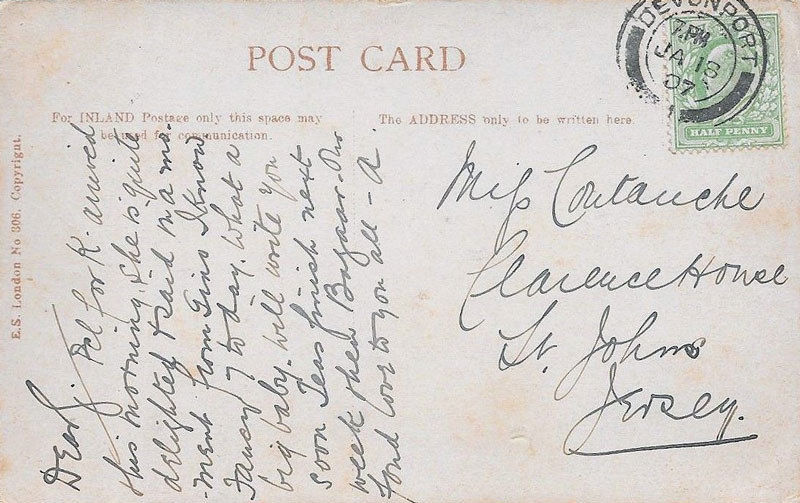 POST CARD
For INLAND Postage only this space may
be used for communication.
The ADDRESS only to be written here.
E.S. London No 306. Copyright.
DEVONPORT
7.PM
JA 18
07
HALF PENNY
Dear J. Pcl for K. arrived
this morning. She is quite
delighted & said "ma ma."
-ment from Gins I know
Fancy 7 to day. What a
big baby. Will write you
soon. Teas finish next
week then Bazaar. Our
fond love to you all - A.
Miss Coutanche
Clarence House
St. Johns
Jersey.